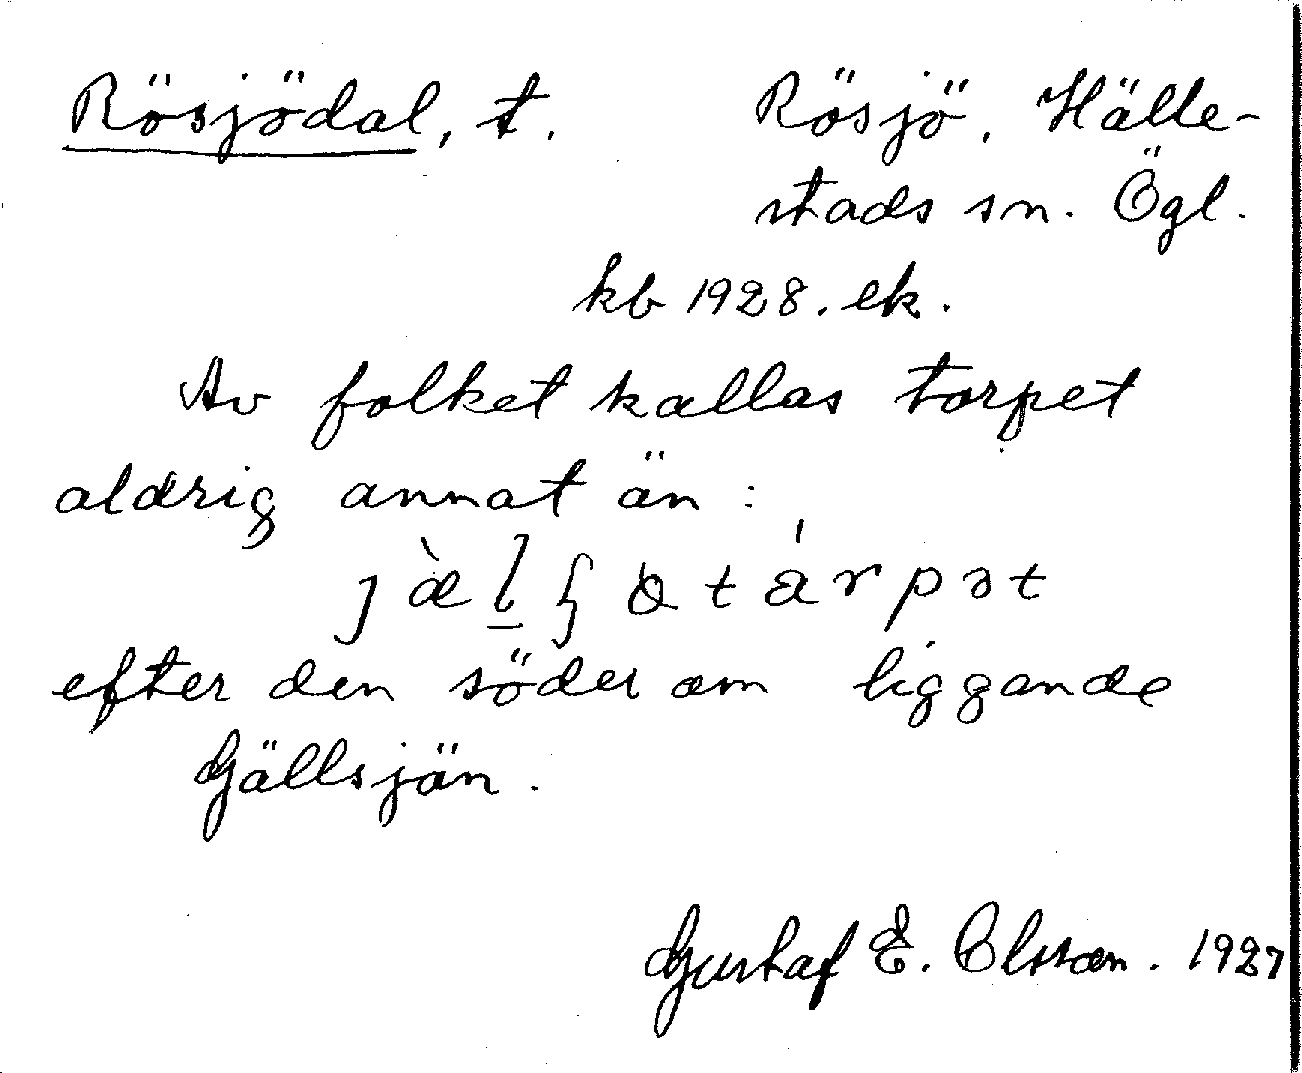 Rösjödal, t. Rösjö, Hälle-
stads sn. Ögl.
kb 1928. ek.
Av folket kallas torpet
aldrig annat än:
efter den söder om liggande
Gällsjön.
Gustaf E. Olsson. 1927